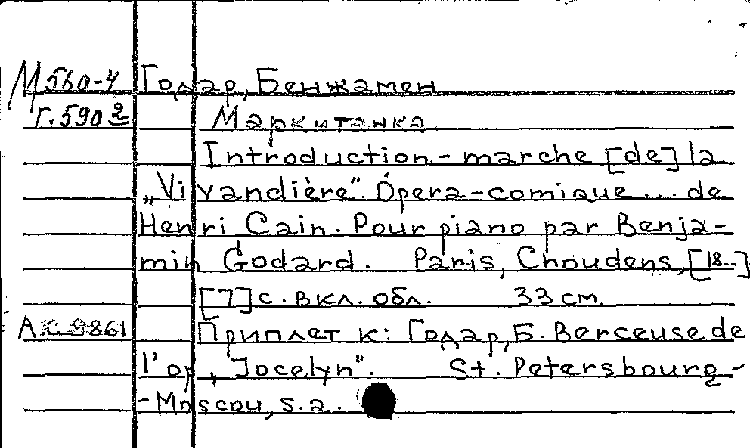 М 560-4 Годар, Бенжамен
Г. 590 2 Маркитанка
Introduction-marche [de] la
„Vivandière". Opera-comique... de
Henri Cain. Pour piano par Benja-
min Godard. Paris, Choudens, [18..]
[7] с. вкл. обл. 33 см.
А.С. 9861 Приплет к: Годар, Б. Berceuse de
l'op „Jocelyn". St. Petersbourg-
-Moscou, s.a.